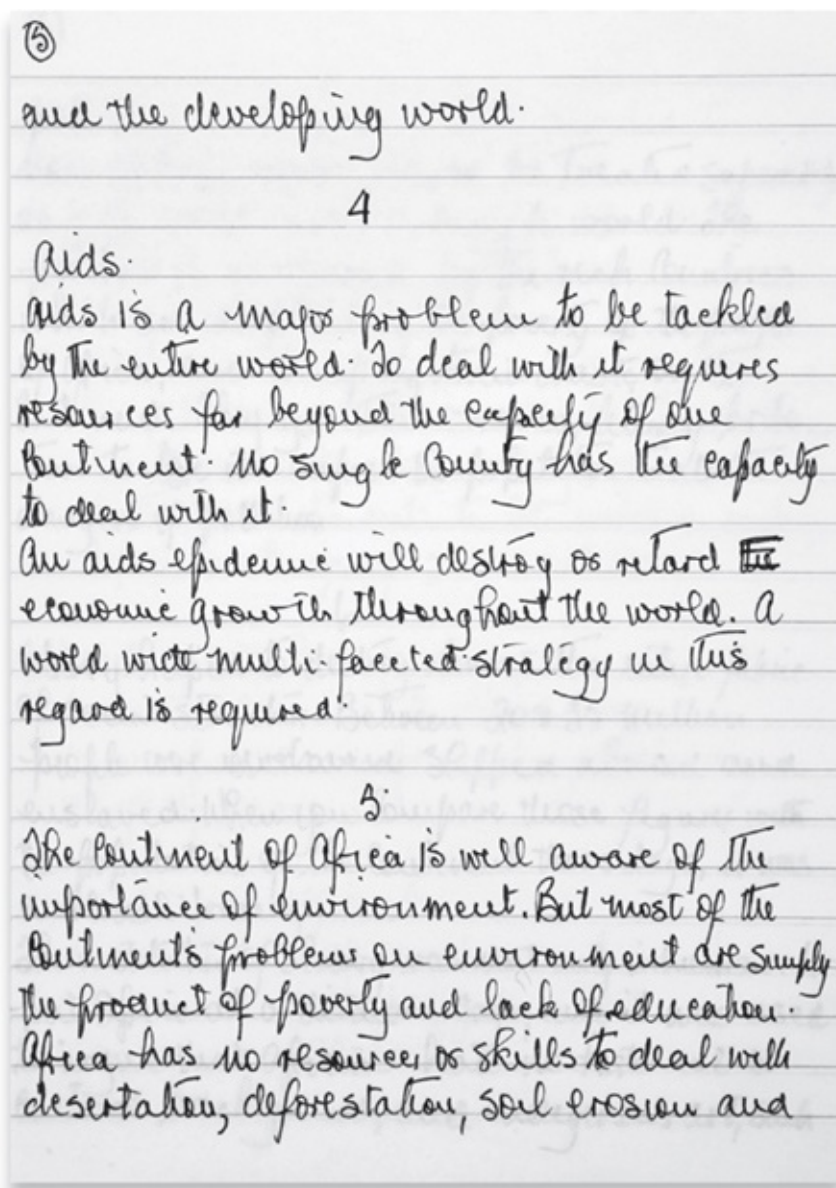 5
and the developing world.
4
Aids.
Aids is a major problem to be tackled
by the entire world. To deal with it requires
resources far beyond the capacity of one
Continent. No single Country has the capacity
to deal with it.
An aids epidemic will destroy or retard the
economic growth throughout the world. A
world wide multi-faceted strategy in this
regard is required.
5.
The Continent of Africa is well aware of the
importance of environment. But most of the
Continent's problems on environment are simply
the product of poverty and lack of education.
Africa has no resources or skills to deal with
desertation, deforestation, soil erosion and